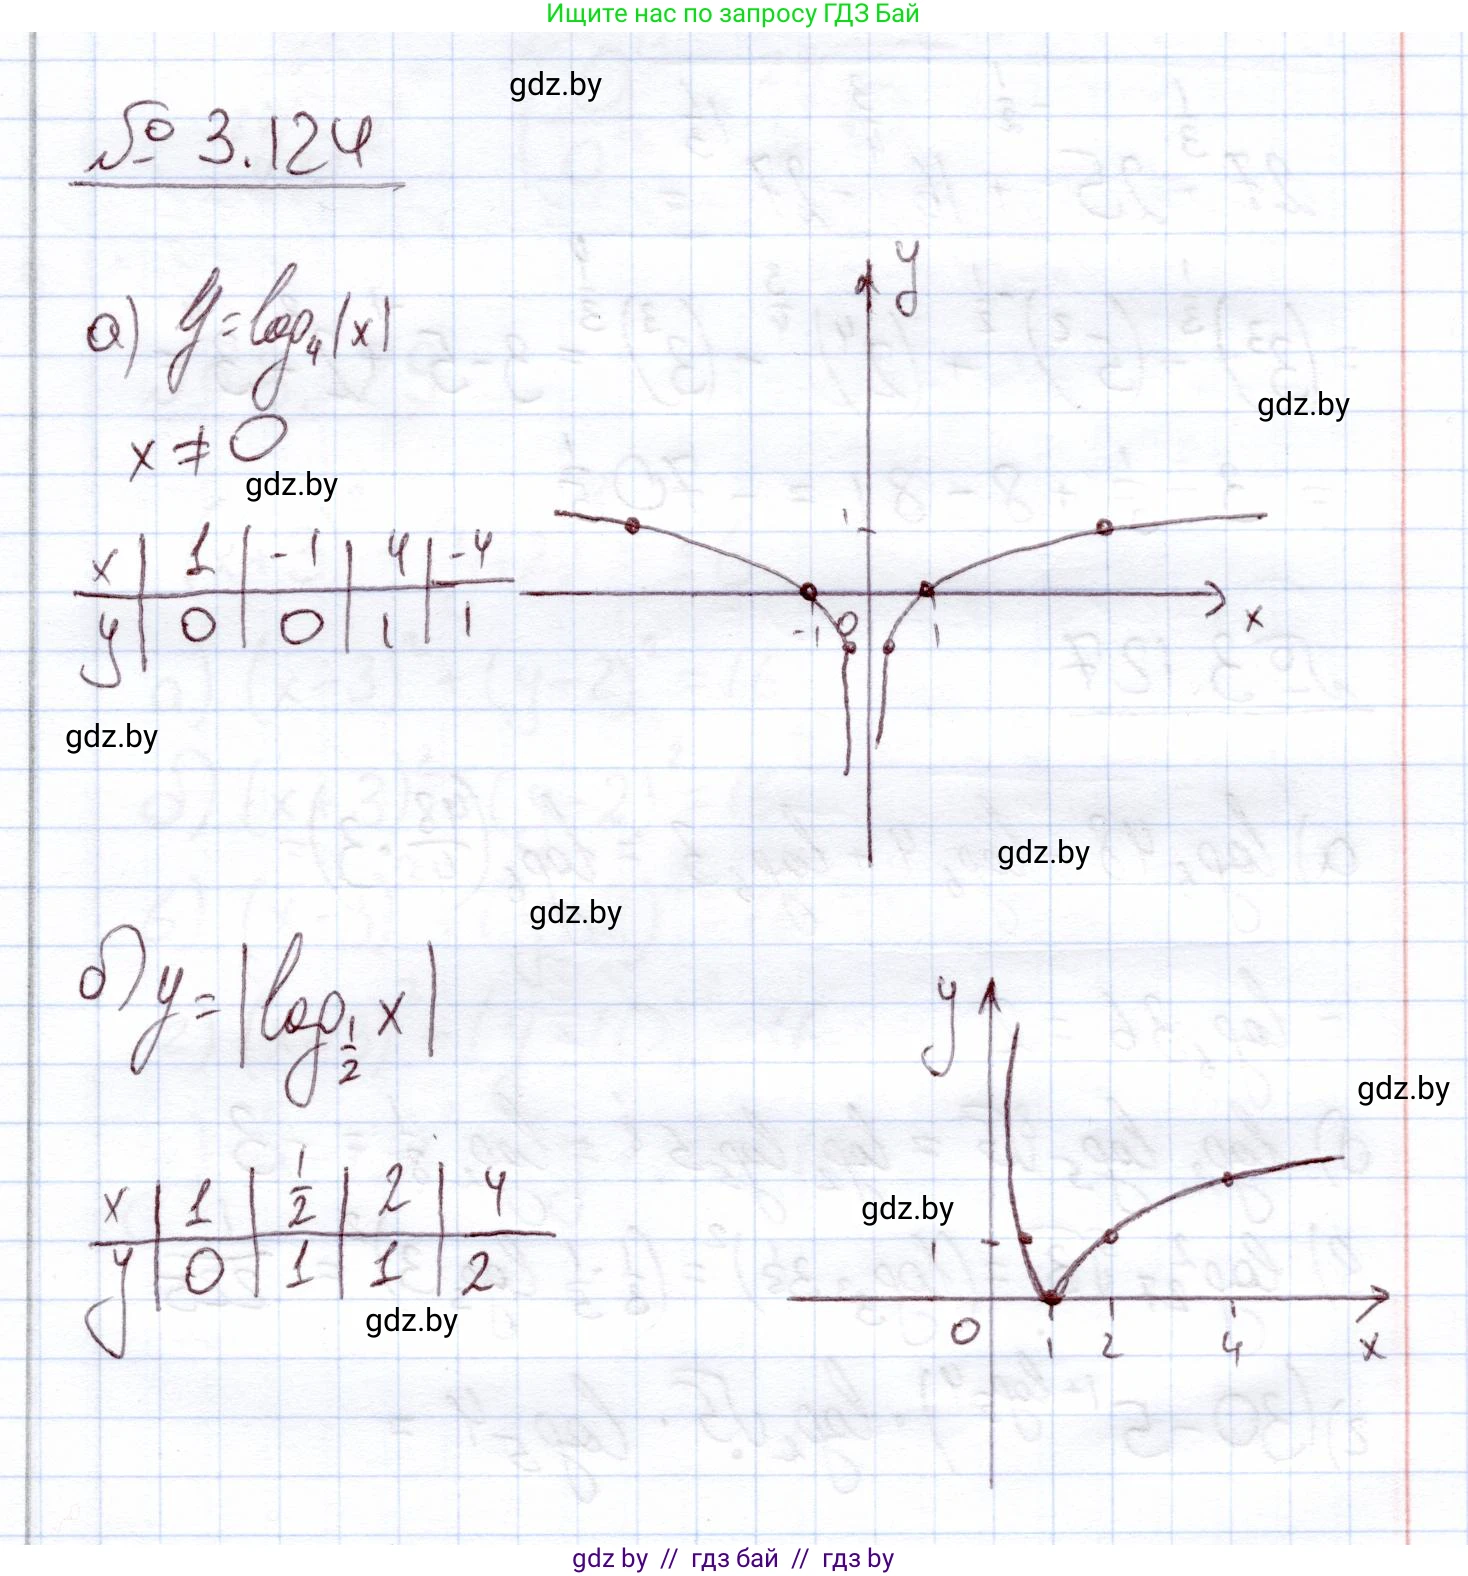 Ищите нас по запросу ГДЗ Бай
gdz.by
№ 3.124
а) y = log₄|x|
x ≠ 0
gdz.by
x | 1 | -1 | 4 | -4
y | 0 | 0 | 1 | 1
y
1
-1 0 1
x
gdz.by
gdz.by
gdz.by
gdz.by
б) y = |log_{1/2} x|
x | 1 | 1/2 | 2 | 4
y | 0 | 1 | 1 | 2
gdz.by
y
gdz.by
gdz.by
1
0 1 2 4 x
gdz by // гдз бай // гдз by